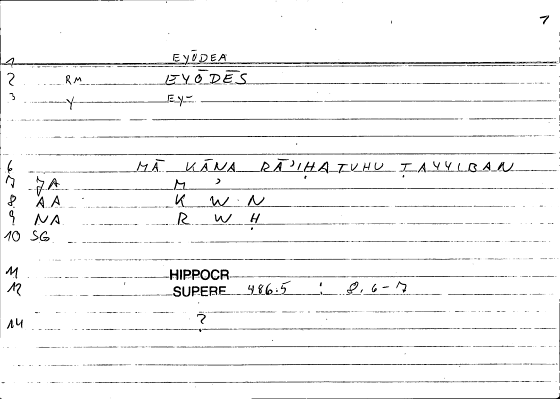 7
1 EYŌDEA
2 RM EYŌDĒS
3 Y EY-
6 MĀ KĀNA RĀʾIḤATUHU ṬAYYIBAN
7 JA M ʾ
8 AA K W N
9 NA R W Ḥ
10 SG
11 HIPPOCR
12 SUPERF 486.5 : 8.6-7
14 ?